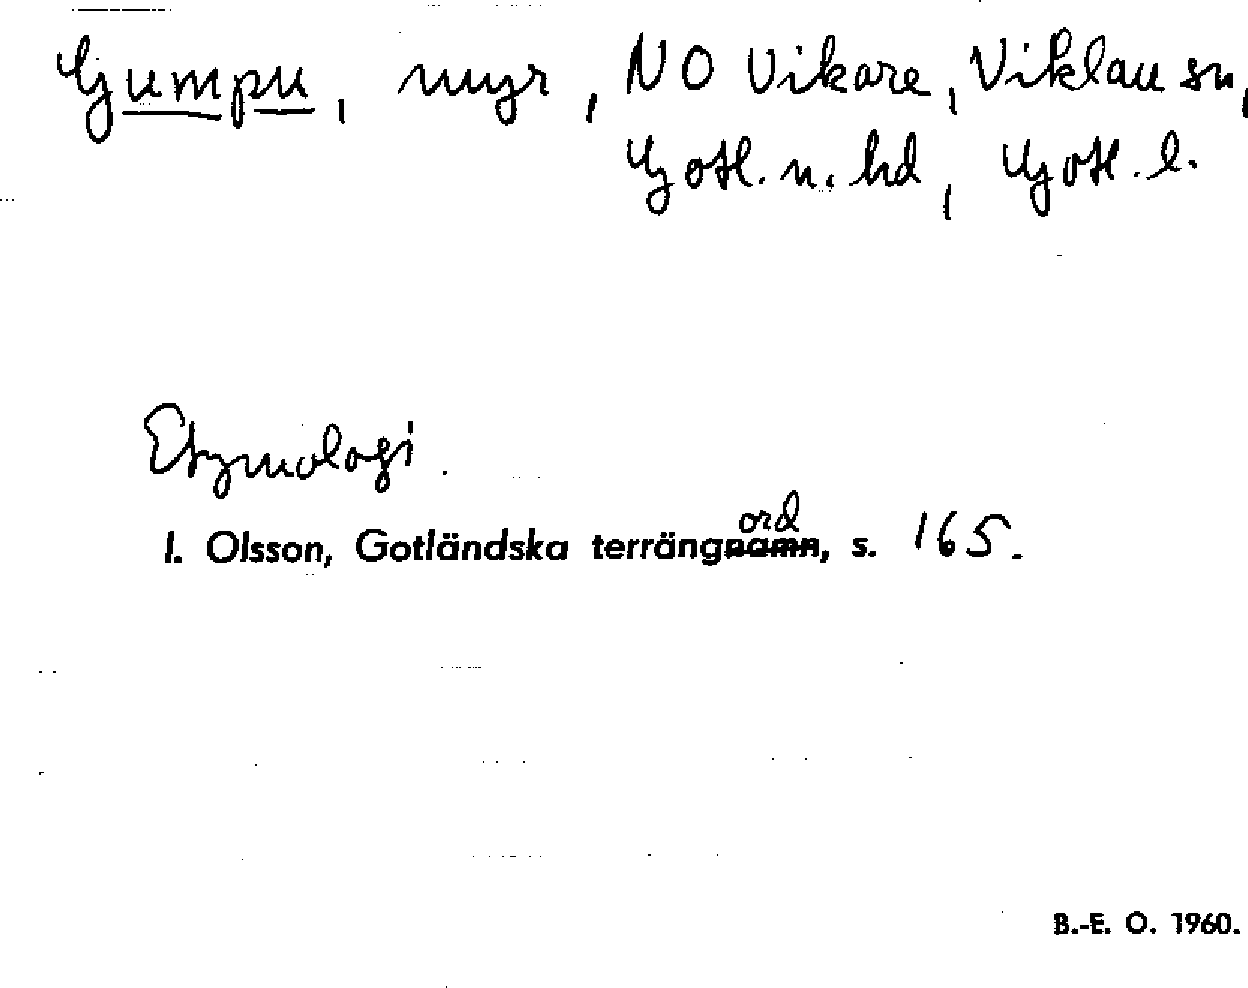 Gumpu, myr, NO Vikare, Viklau sn,
Gotl. n. hd, Gotl. l.
Etymologi.
ord
I. Olsson, Gotländska terrängnamn, s. 165.
B.-E. O. 1960.